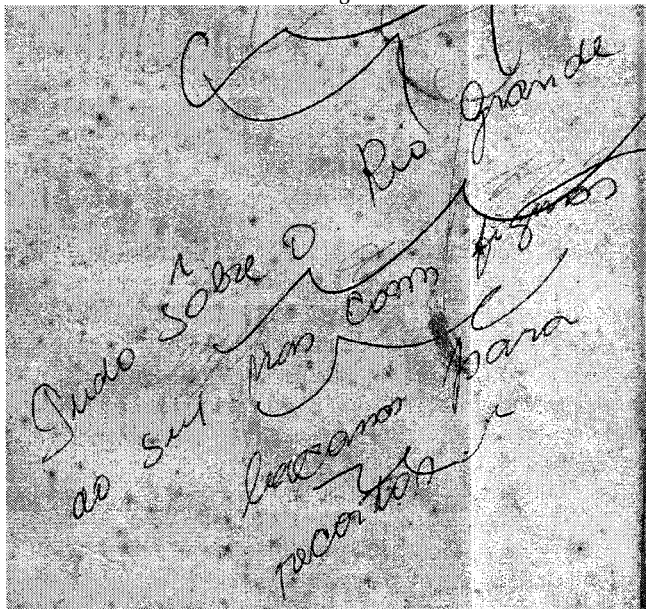 Tudo sôbre o Rio Grande
do sul mas com figuras
bacanas para
recortar